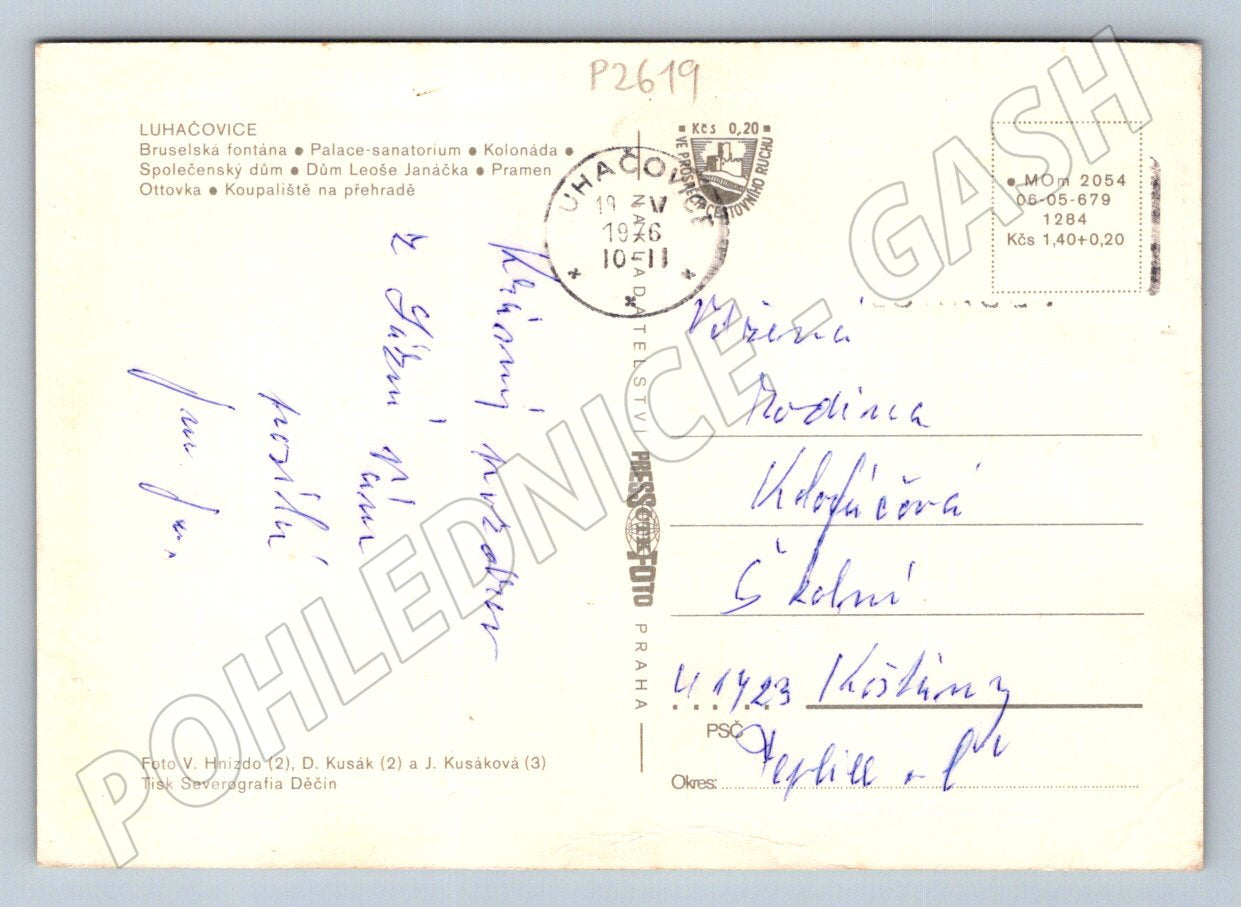 P2619
LUHAČOVICE
Bruselská fontána ● Palace-sanatorium ● Kolonáda ●
Společenský dům ● Dům Leoše Janáčka ● Pramen
Ottovka ● Koupaliště na přehradě
Kčs 0,20
VE PROSPĚCH CESTOVNÍHO RUCHU
LUHAČOVICE
19 V
1976
10-11
● MOm 2054
06-05-679
1284
Kčs 1,40+0,20
Krásný pozdrav
z Lázní Vám
posílá
NAKLADATELSTVÍ PRESSFOTO PRAHA
ČTK
Vážená
Rodina
Školní
41723 Košťany
PSČ
Okres: Teplice
Foto V. Hnizdo (2), D. Kusák (2) a J. Kusáková (3)
Tisk Severografia Děčín
POHLEDNICE - GASH